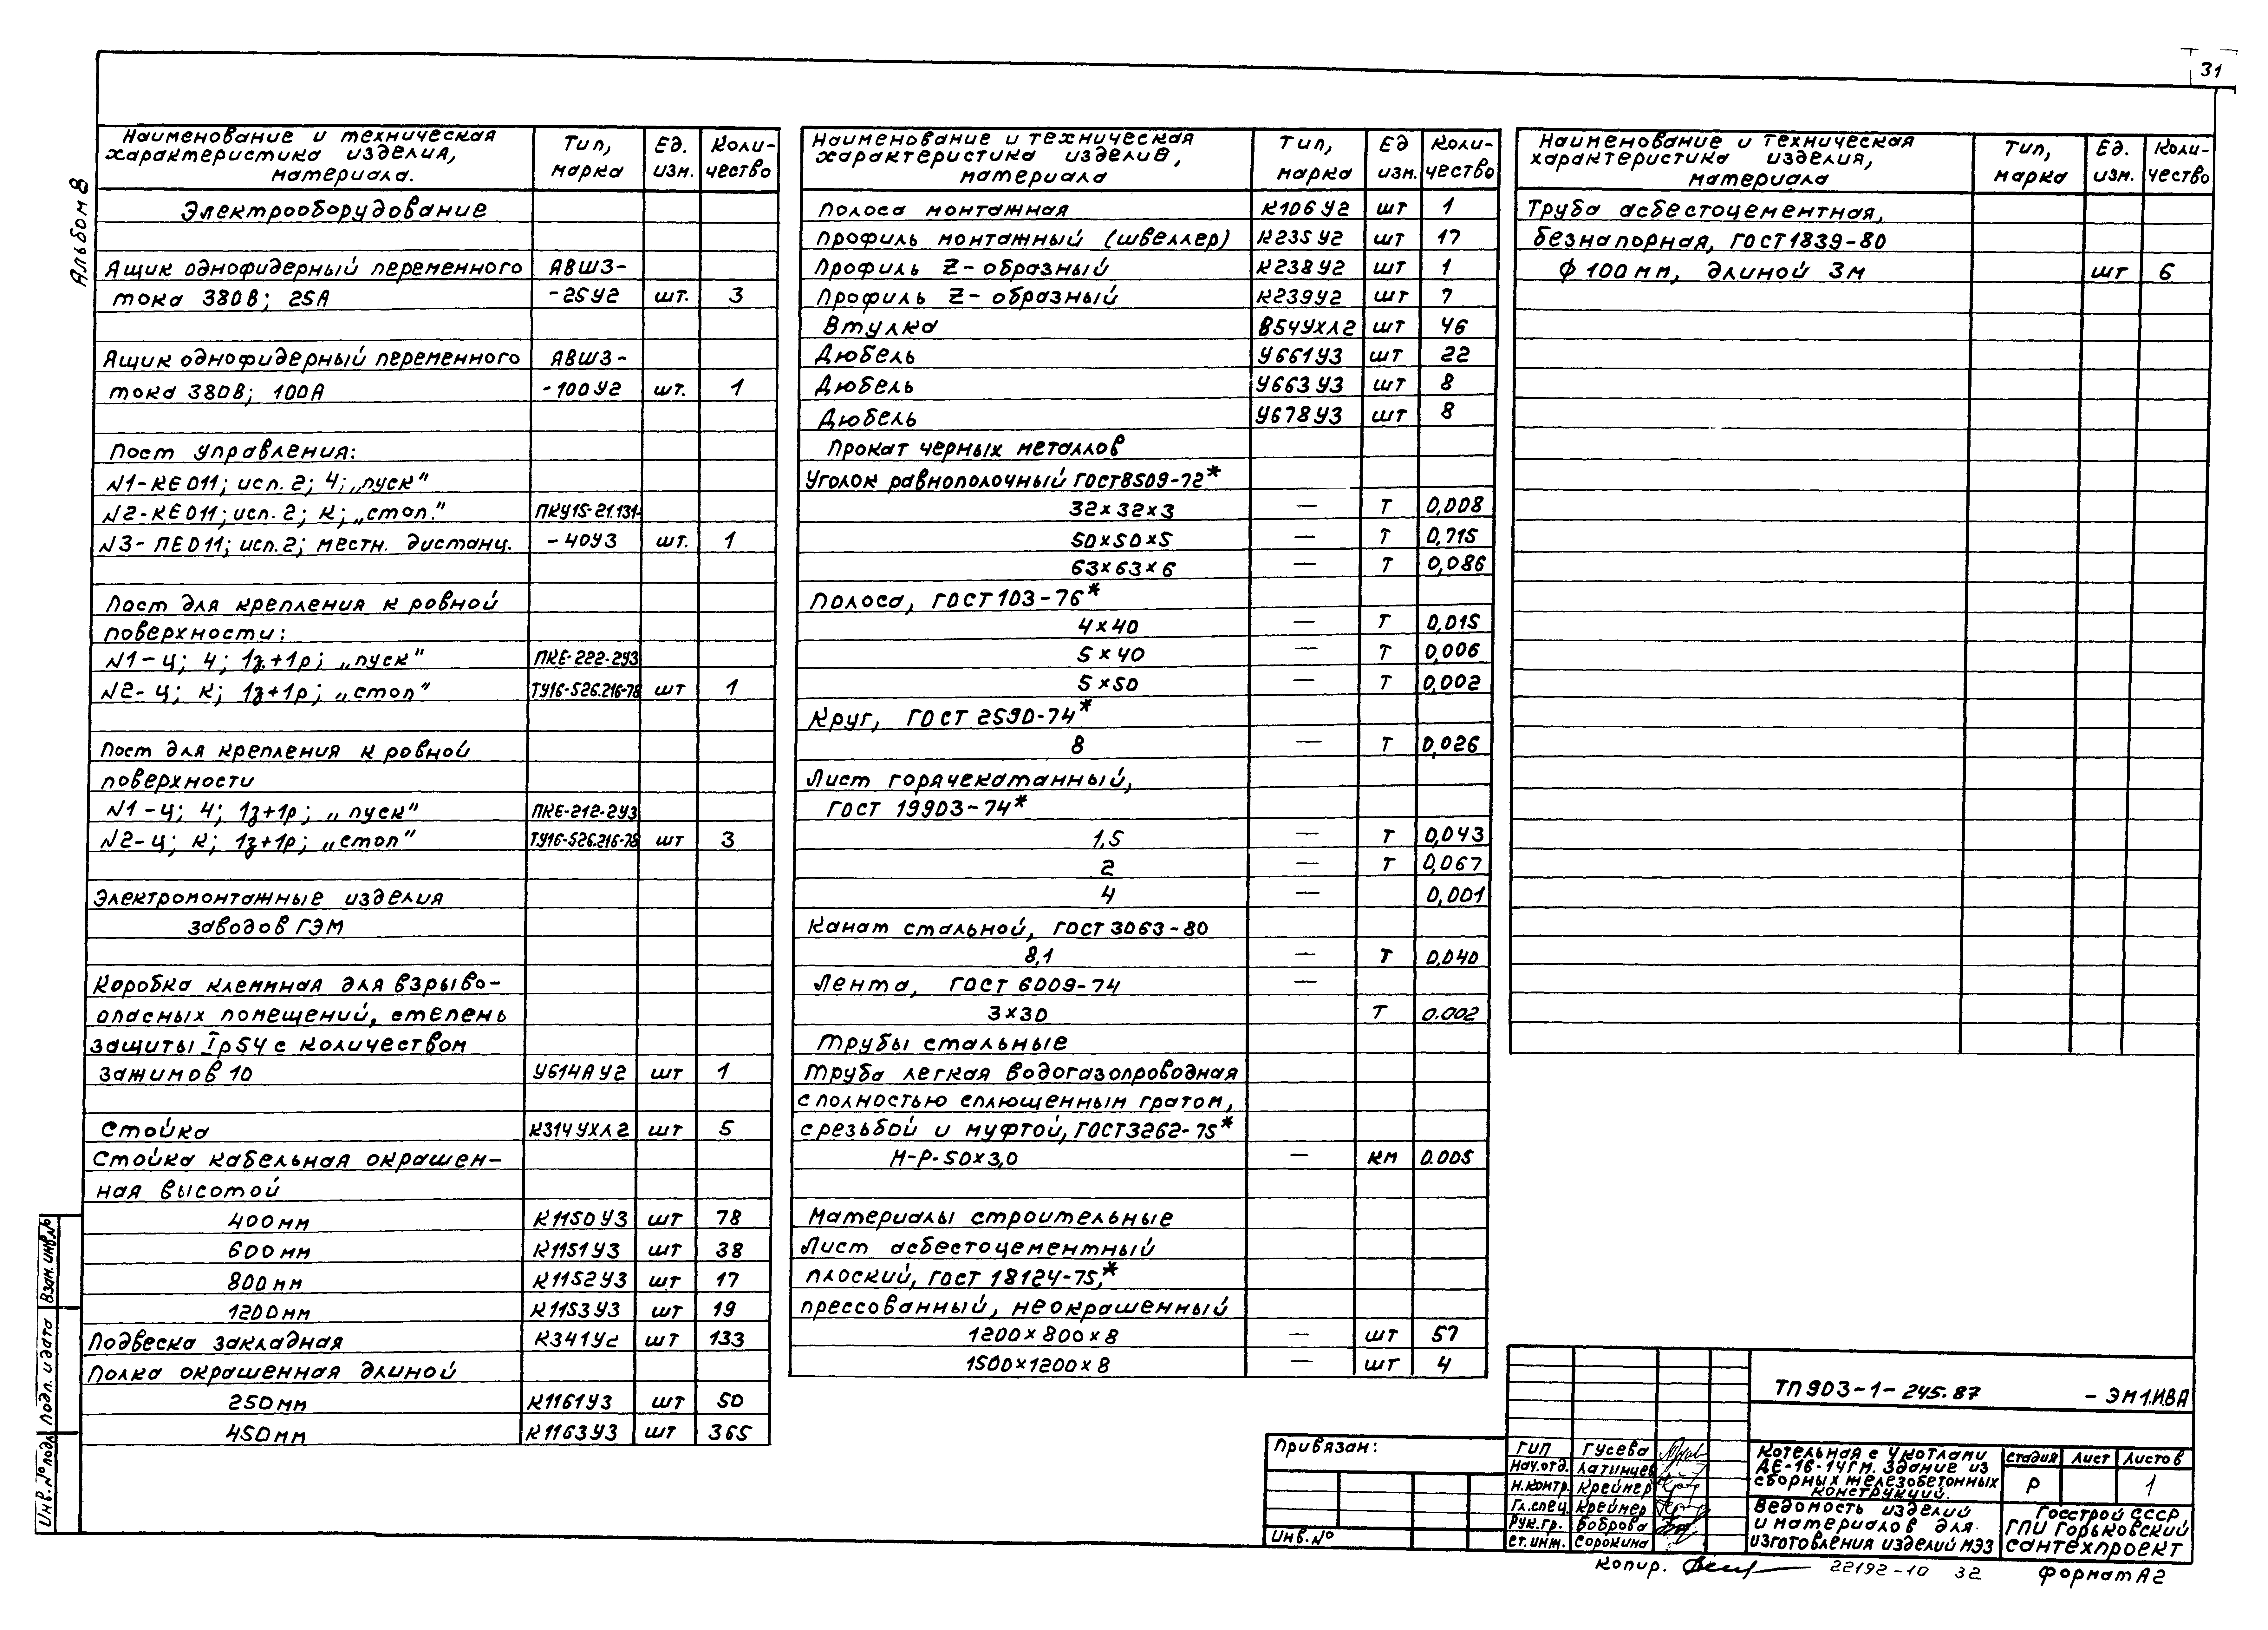 31
Альбом 8
Наименование и техническая характеристика изделия, материала. | Тип, марка | Ед. изм. | Коли-чество
Электрооборудование
Ящик однофидерный переменного | ЯВШ3-
тока 380В; 25А | -25У2 | шт. | 3
Ящик однофидерный переменного | ЯВШ3-
тока 380В; 100А | -100У2 | шт. | 1
Пост управления:
N1-КЕ011; исп. 2; 4; „пуск"
N2-КЕ011; исп. 2; К; „стоп." | ПКУ15-21.131-
N3-ПЕ011; исп. 2; местн. дистанц. | -40У3 | шт. | 1
Пост для крепления к ровной
поверхности:
N1-ц; 4; 1з+1р; „пуск" | ПКЕ-222-2У3
N2-ц; К; 1з+1р; „стоп" | ТУ16-526.216-78 | шт | 1
Пост для крепления к ровной
поверхности
N1-ц; 4; 1з+1р; „пуск" | ПКЕ-212-2У3
N2-ц; К; 1з+1р; „стоп" | ТУ16-526.216-78 | шт | 3
Электромонтажные изделия
заводов ГЭМ
Коробка клеммная для взрыво-
опасных помещений, степень
защиты Ip54 с количеством
зажимов 10 | У614А У2 | шт | 1
Стойка | К314УХЛ2 | шт | 5
Стойка кабельная окрашен-
ная высотой
400мм | К1150У3 | шт | 78
600мм | К1151У3 | шт | 38
800мм | К1152У3 | шт | 17
1200мм | К1153У3 | шт | 19
Подвеска закладная | К341У2 | шт | 133
Полка окрашенная длиной
250мм | К1161У3 | шт | 50
450мм | К1163У3 | шт | 365
Наименование и техническая характеристика изделия, материала | Тип, марка | Ед изм. | Коли-чество
Полоса монтажная | К106У2 | шт | 1
Профиль монтажный (швеллер) | К235У2 | шт | 17
Профиль Z-образный | К238У2 | шт | 1
Профиль Z-образный | К239У2 | шт | 7
Втулка | В54УХЛ2 | шт | 46
Дюбель | У661У3 | шт | 22
Дюбель | У663У3 | шт | 8
Дюбель | У678У3 | шт | 8
Прокат черных металлов
Уголок равнополочный ГОСТ8509-72*
32×32×3 | — | т | 0,008
50×50×5 | — | т | 0,715
63×63×6 | — | т | 0,086
Полоса, ГОСТ 103-76*
4×40 | — | т | 0,015
5×40 | — | т | 0,006
5×50 | — | т | 0,002
Круг, ГОСТ 2590-74*
8 | — | т | 0,026
Лист горячекатанный,
ГОСТ 19903-74*
1,5 | — | т | 0,043
2 | — | т | 0,067
4 | — | 0,001
Канат стальной, ГОСТ 3063-80
8,1 | — | т | 0,040
Лента, ГОСТ 6009-74 | —
3×30 | т | 0.002
Трубы стальные
Труба легкая водогазопроводная
с полностью сплющенным гратом,
с резьбой и муфтой, ГОСТ3262-75*
М-Р-50×3,0 | — | км | 0.005
Материалы строительные
Лист асбестоцементный
плоский, ГОСТ 18124-75,*
прессованный, неокрашенный
1200×800×8 | — | шт | 57
1500×1200×8 | — | шт | 4
Наименование и техническая характеристика изделия, материала | Тип, марка | Ед. изм. | Коли-чество
Труба асбестоцементная,
безнапорная, ГОСТ1839-80
ф 100мм, длиной 3м | шт | 6
Взам. инв.№
Подп. и дата
Инв.№ подл
Привязан:
Инв.№
ТП 903-1-245.87 -ЭМ1.И.ВА
ГИП Гусева
Нач.отд. Латинцев
Н.контр. Креймер
Гл.спец. Креймер
Рук.гр. Боброва
Ст.инж. Сорокина
Котельная с 4 котлами
ДЕ-16-14ГМ. Здание из
сборных железобетонных
конструкций.
Стадия Лист Листов
Р 1
Ведомость изделий
и материалов для
изготовления изделий МЭЗ
Госстрой СССР
ГПИ Горьковский
Сантехпроект
Копир. 22192-10 32 Формат А2